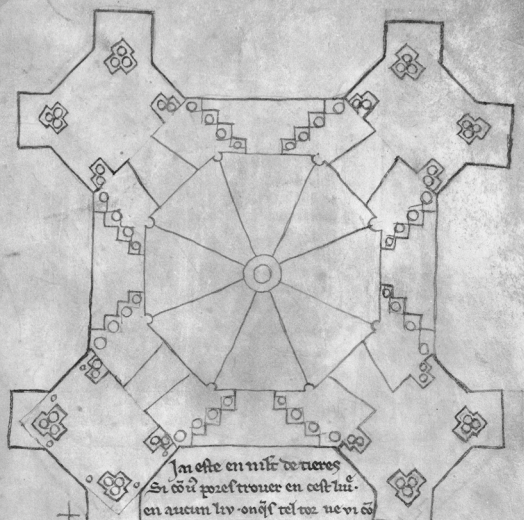 Jai este en mlt de tieres
Si cō uˢ pores trover en cest livͬe.
en aucun liu. onq̄s tel tor ne vi cō